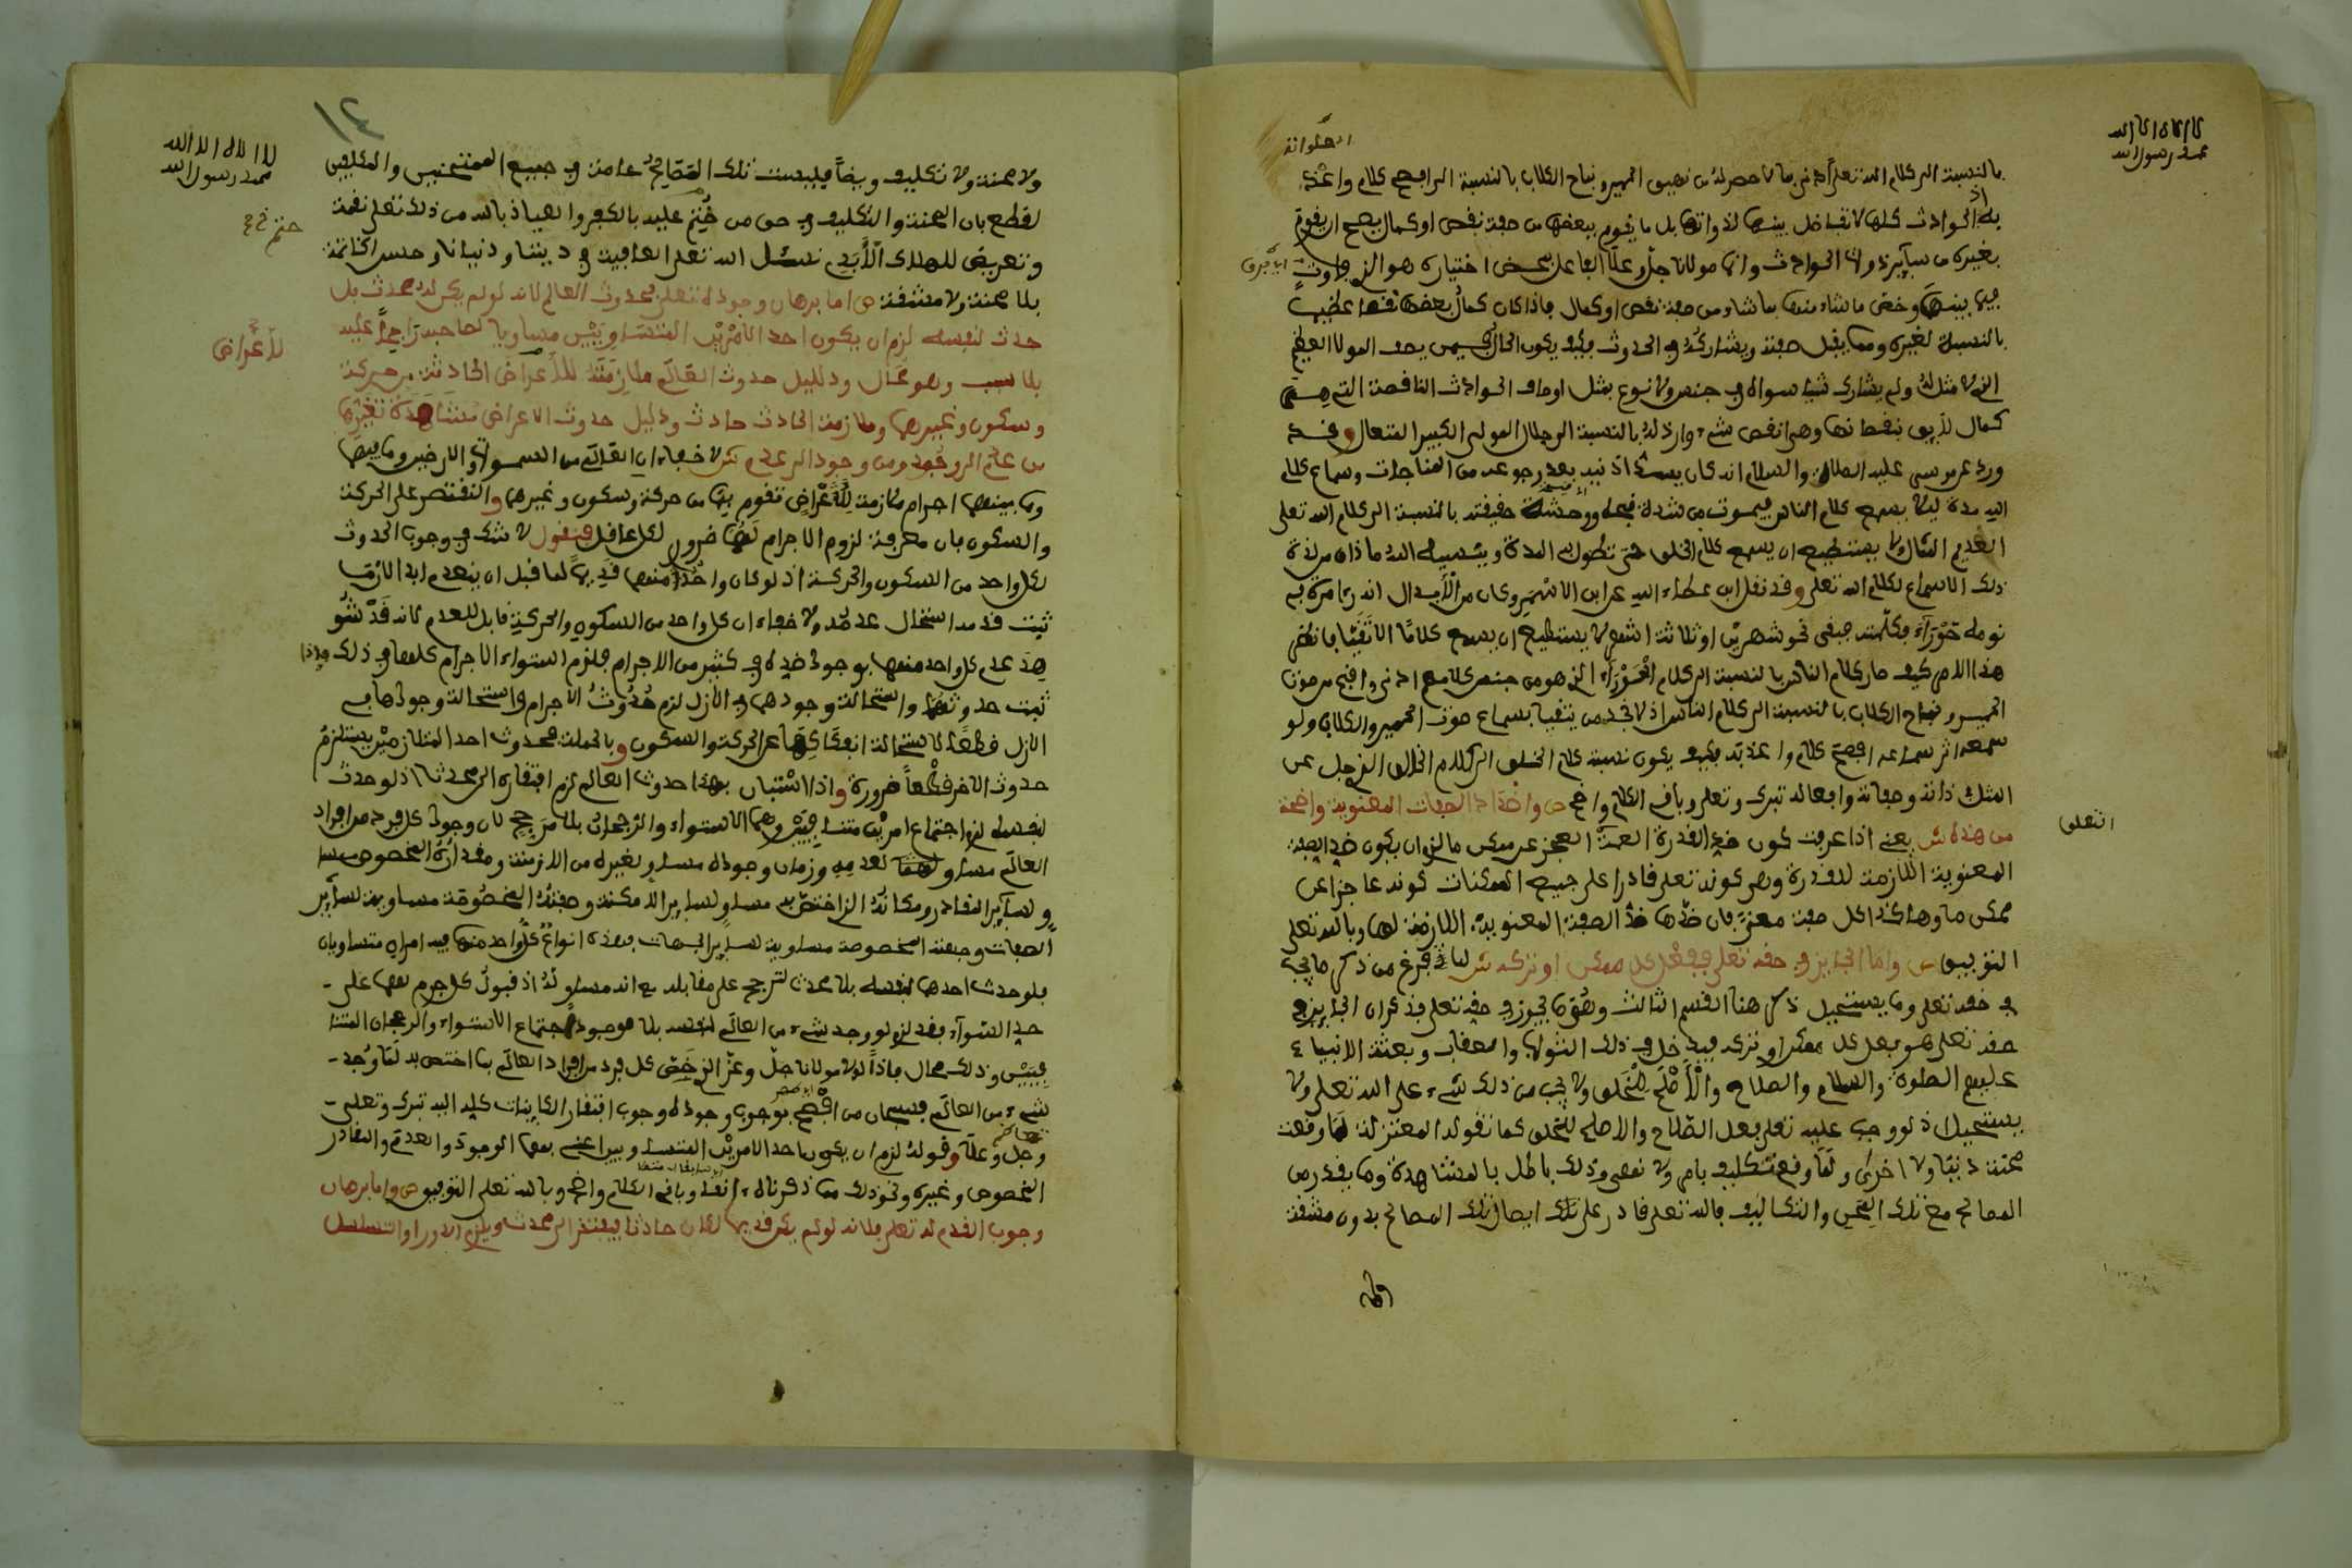 لا اله الا الله
محمد رسول الله
الحيوانية
بالنسبة الى كلام الله تعلى ادنى بما لا حصر له من نهيق الحمير ونباح الكلاب بالنسبة الى افصح كلام واعذبه
اذ الحوادث كلها لا تفاضل بينها لذواتها بل ما يقوم ببعضها من صفة نقص او كمال يصح ان يقوم
بغيره من سائر ذوات الحوادث وانما مولانا جل وعلا الفاعل بمحض اختياره هو الذي فاوت
فيما بينها وخص ما شاء منها بما شاء من صفة نقص او كمال فاذا كان كمال بعضها نقصا عظيما
بالنسبة لغيره مما يقبل صفته ويشاركه في الحدوث فكيف يكون الحال فيمن يصف المولى العظيم
الذي لا مثل له ولم يشارك شيا سواه في جنس ولا نوع بمثل اوصاف الحوادث الناقصة التي هي
كمال لايق بنقصانها وهي انقص شيء وارذله بالنسبة الى جلال المولى الكبير المتعال وقد
ورد عن موسى عليه الصلاة والسلام انه كان يسد اذنيه بعد رجوعه من المناجات وسماع كلام
الله مدة ليلا يسمع كلام الناس فيموت من شدة قبحه ووحشته حقيقته بالنسبة الى كلام الله تعلى
العديم المثال ولا يستطيع ان يسمع كلام الخلق حتى تطول به المدة وينسيه الله ما ذاق من لذة
ذلك الاسماع لكلام الله تعلى وقد نقل ابن عطاء الله عن ابن الاسمر وكان من الابدال انه راى مرة في
نومه حوراء وكلمته فبقى نحو شهرين او ثلاثة اشهر لا يستطيع ان يسمع كلاما الا تقيا فانظر
هذا الامر كيف صار كلام الناس بالنسبة الى كلام الحوراء الذي هو من جنس كلامهم ادنى واقبح من صوت
الحمير ونباح الكلاب بالنسبة الى كلام الناس اذ لا تجد من يتقيا بسماع صوت الحمير والكلاب ولو
سمعه اثر سماعه افصح كلام واعذبه فكيف يكون نسبة كلام الخلق الى كلام الخالق الذي جل عن
المثل ذاته وصفاته وافعاله تبرك وتعلى وباقي الكلام واضح ص واضداد الصفات المعنوية واضحة
من هذه ش يعني اذا عرفت كون ضد القدرة العامة العجز عن ممكن ما لزم ان يكون ضد الصفة
المعنوية اللازمة للقدرة وهي كونه تعلى قادرا على جميع الممكنات كونه عاجزا عن
ممكن ما وهكذا كل صفة معنى فان ضدها ضد الصفة المعنوية اللازمة لها وبالله تعلى
التوفيق ص واما الجايز في حقه تعلى ففعل كل ممكن او تركه ش لما فرغ من ذكر ما يجب
في حقه تعلى وما يستحيل ذكر هنا القسم الثالث وهو ما يجوز في حقه تعلى فذكر ان الجايز في
حقه تعلى هو فعل كل ممكن او تركه فيدخل في ذلك الثواب والعقاب وبعثة الانبياء
عليهم الصلوة والسلام والصلاح والاصلح للخلق ولا يجب من ذلك شيء على الله تعلى ولا
يستحيل اذ لو وجب عليه تعلى فعل الصلاح والاصلح للخلق كما تقوله المعتزلة لما وقعت
محنة دنيا ولا اخرى ولما وقع تكليف بامر ولا نهي وذلك باطل بالمشاهدة وما يقدر من
المصالح مع تلك المحن والتكاليف فالله تعلى قادر على ايصال تلك المصالح بدون مشقة
ولا
لا اله الا الله
محمد رسول الله
١٤
ولا محنة ولا تكليف وايضا فليست تلك المصالح عامة في جميع الممتحنين والمكلفين
لقطع بان المحنة والتكليف في حق من ختم عليه بالكفر والعياذ بالله من ذلك تعلى نقمة
وتعريض للهلاك الابدي نسئل الله تعلى العافية في ديننا ودنيانا وحسن الخاتمة
بلا محنة ولا مشقة ص اما برهان وجوده تعلى فحدوث العالم لانه لو لم يكن له محدث بل
حدث لنفسه لزم ان يكون احد الامرين المتساويين مساويا لصاحبه راجحا عليه
بلا سبب وهو محال ودليل حدوث العالم ملازمته للاعراض الحادثة من حركة
وسكون وغيرهما وملازم الحادث حادث ودليل حدوث الاعراض مشاهدة تغيرها
من عدم الى وجود ومن وجود الى عدم ش لا خفاء ان العالم من السموات والارضين وما فيهما
وما بينهما اجرام ملازمة لاعراض تقوم بها من حركة وسكون وغيرهما ولنقتصر على الحركة
والسكون فان معرفة لزوم الاجرام لهما ضروري لكل عاقل فنقول لا شك في وجوب الحدوث
لكل واحد من السكون والحركة اذ لو كان واحدا منهما قديما لما قبل ان ينعدم ابدا لان ما
ثبت قدمه استحال عدمه ولا خفاء ان كل واحد من السكون والحركة قابل للعدم لانه قد شو
هد عدم كل واحد منهما بوجود ضده في كثير من الاجرام فلزم استواء الاجرام كلها في ذلك واذا
ثبت حدوثهما واستحالة وجودهما في الازل لزم حدوث الاجرام واستحالة وجودها في
الازل قطعا لاستحالة انفكاكها عن الحركة والسكون وبالجملة فحدوث احد المتلازمين يستلزم
حدوث الاخر قطعا ضرورة واذا استبان بهذا حدوث العالم لزم افتقاره الى محدث اذ لو حدث
لنفسه لزم اجتماع امرين متنافيين وهما الاستواء والرجحان بلا مرجح لان وجود كل فرد من افراد
العالم مساو لعدمه وزمان وجوده مساو لغيره من الازمنة ومقداره المخصوص مسا
و لسائر المقادر ومكانه الذي اختص به مساو لسائر الامكنة وصفته المخصوصة مساوية لسائر
الصفات وجهته المخصوصة مساوية لسائر الجهات فهذه انواع كل واحد منها فيه امران متساويان
فلو حدث احدهما لنفسه بلا محدث لترجح على مقابله مع انه مساو له اذ قبول كل جرم لهما على
حد السواء فقد لزم لو وجد شيء من العالم لنفسه بلا موجد اجتماع الاستواء والرجحان المتنا
فيين وذلك محال فاذا لولا مولانا جل وعز الذي خص كل فرد من افراد العالم بما اختص به لما وجد
شيء من العالم فسبحان من افصح بوجوب وجوده وجوب افتقار الكاينات كلها اليه تبرك وتعلى
وجل وعلا وقوله لزم ان يكون احد الامرين المتساويين اعني بهما الوجود والعدم والمقدار
المخصوص وغيره ونحو ذلك مما ذكرناه انفا وباقي الكلام واضح وبالله تعلى التوفيق ص واما برهان
وجوب القدم له تعلى فلانه لو لم يكن قديما لكان حادثا فيفتقر الى محدث ويلزم الدور او التسلسل
للاعراض